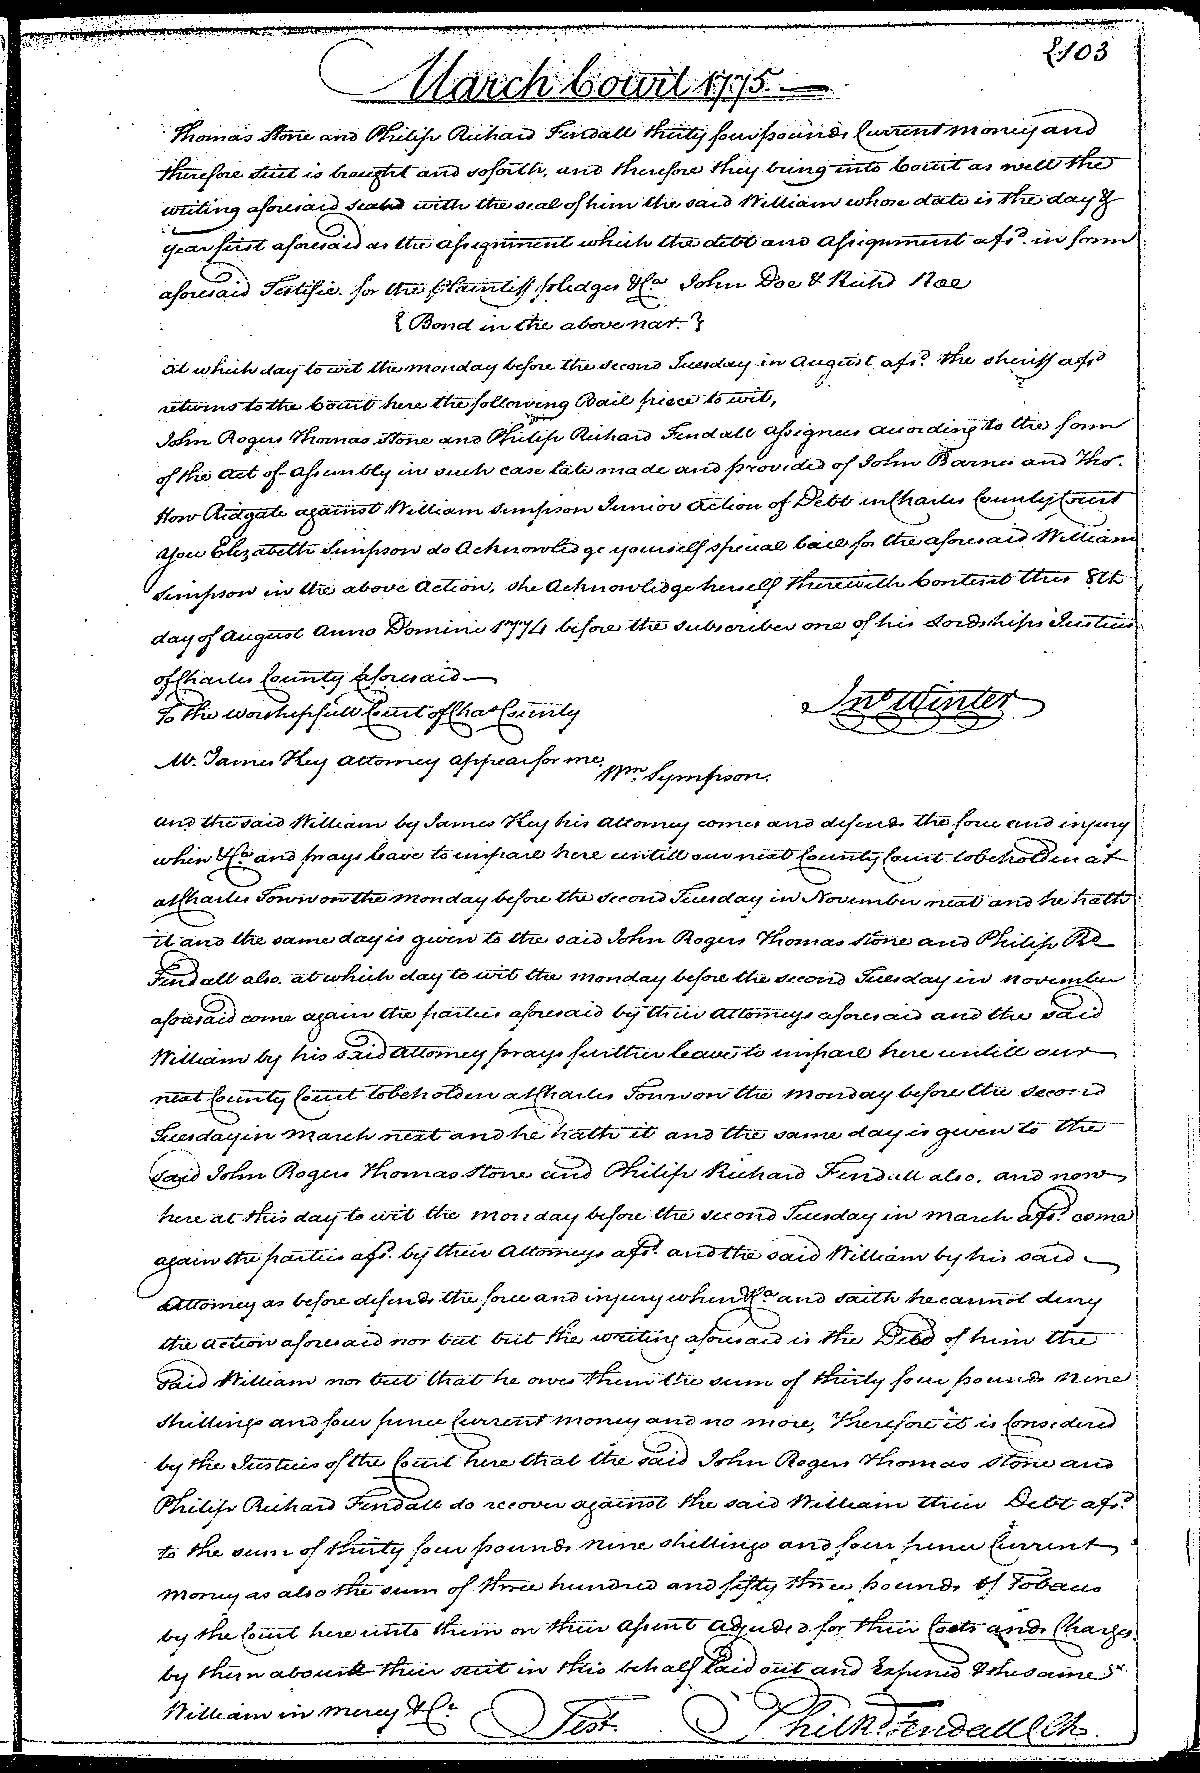 103
March Court 1775
Thomas Stone and Philip Richard Fendall thirty four pounds Current money and
therefore suit is brought and soforth, and therefore they bring into Court as well the
writing aforesaid seald with the seal of him the said William whose date is the day &
year first aforesaid as the assignment which the debt and assignment afsd. in form
aforesaid Testifie. for the Plaintiff pledges &Ca John Doe & Richd Roe
{ Bond in the above nar. }
At which day to wit the monday before the second Tuesday in August afsd. the sheriff afsd
returns to the Court here the following Bail piece to wit,
John Rogers Thomas Stone and Philip Richard Fendall assignees according to the form
of the Act of Assembly in such case late made and provided of John Barnes and Tho.
How Ridgate against William Simpson Junior Action of Debt in Charles County Court
You Elizabeth Simpson do Acknowledge yourself special bail for the aforesaid William
Simpson in the above Action, she Acknowledge herself therewith Content this 8th
day of August Anno Domini 1774 before the subscriber one of his Lordships Justices
of Charles County aforesaid
Jno Winter
To the worshipfull Court of Chas County
Mr. James Key attorney appear for me.
Wm Sympson.
And the said William by James Key his Attorney comes and defends the force and injury
when &Ca and prays leave to imparl here untill our next County Court tobeholden at
at Charles Town on the monday before the second Tuesday in November next and he hath
it and the same day is given to the said John Rogers Thomas Stone and Philip Rd
Fendall also. at which day to wit the monday before the second Tuesday in november
aforesaid come again the parties aforesaid by their Attorneys aforesaid and the said
William by his said Attorney prays further leave to imparl here untill our
next County Court tobeholden at Charles Town on the monday before the second
Tuesday in march next and he hath it and the same day is given to the
said John Rogers Thomas Stone and Philip Richard Fendall also. and now
here at this day to wit the monday before the second Tuesday in march afsd. come
again the parties afsd. by their Attorneys afsd. and the said William by his said
Attorney as before defends the force and injury when &Ca and saith he cannot deny
the action aforesaid nor but but the writing aforesaid is the Deed of him the
said William nor but that he owes them the sum of thirty four pounds nine
shillings and four pence Current money and no more, Therefore it is Considered
by the Justices of the Court here that the said John Rogers Thomas Stone and
Philip Richard Fendall do recover against the said William their Debt afsd.
to the sum of thirty four pounds nine shillings and four pence Current
money as also the sum of three hundred and fifty three pounds of Tobacco
by the Court here unto them on their Assent adjudged for their Costs and Charges
by them about their suit in this behalf laid out and Expened & the same
William in mercy &Ca
Test. Phil Rd Fendall Clk.